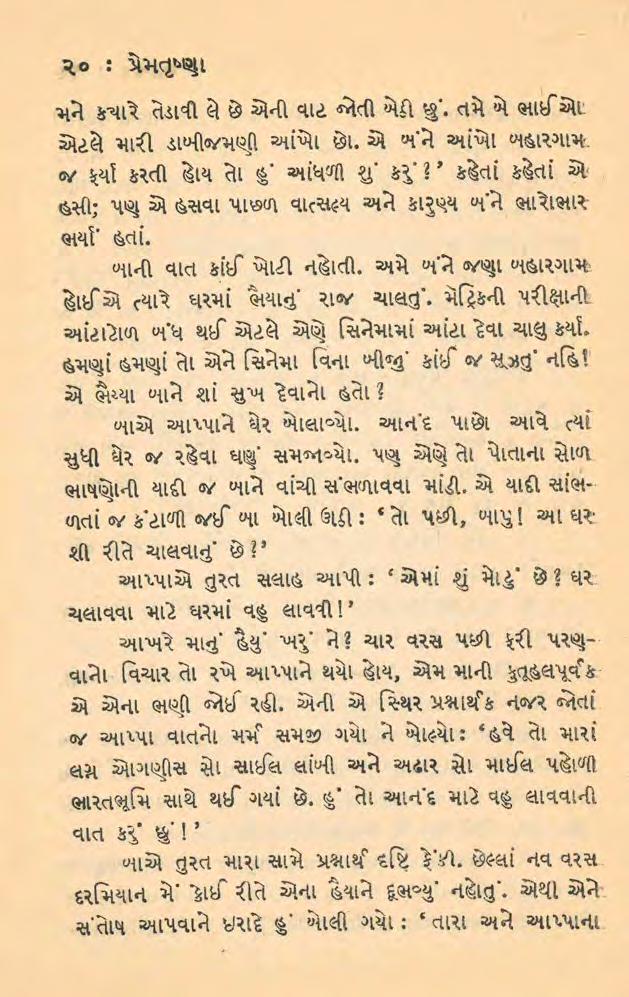 ૨૦ : પ્રેમતૃષ્ણા
મને ક્યારે તેડાવી લે છે એની વાટ જોતી બેઠી છું. તમે બે ભાઈઓ
એટલે મારી ડાબીજમણી આંખો છો. એ બંને આંખો બહારગામ
જ ફર્યા કરતી હોય તો હું આંધળી શું કરું?’ કહેતાં કહેતાં એ
હસી; પણ એ હસવા પાછળ વાત્સલ્ય અને કારુણ્ય બંને ભારોભાર
ભર્યાં હતાં.
બાની વાત કાંઈ ખોટી નહોતી. અમે બંને જણા બહારગામ
હોઈએ ત્યારે ઘરમાં ભૈયાનું રાજ ચાલતું. મેટ્રિકની પરીક્ષાની
આંટાટોળ બંધ થઈ એટલે એણે સિનેમામાં આંટા દેવા ચાલુ કર્યા.
હમણાં હમણાં તો એને સિનેમા વિના બીજું કાંઈ જ સૂઝતું નહિ!
એ ભૈય્યા બાને શાં સુખ દેવાનો હતો?
બાએ આપ્પાને ઘેર બોલાવ્યો. આનંદ પાછો આવે ત્યાં
સુધી ઘેર જ રહેવા ઘણું સમજાવ્યો. પણ એણે તો પોતાના સોળ
ભાષણોની યાદી જ બાને વાંચી સંભળાવવા માંડી. એ યાદી સાંભ-
ળતાં જ કંટાળી જઈ બા બોલી ઊઠી : ‘તો પછી, બાપુ! આ ઘર
શી રીતે ચાલવાનું છે?’
આપ્પાએ તુરત સલાહ આપી : ‘એમાં શું મોટું છે? ઘર
ચલાવવા માટે ઘરમાં વહુ લાવવી!’
આખરે માનું હૈયું ખરું ને? ચાર વરસ પછી ફરી પરણ-
વાનો વિચાર તો રખે આપ્પાને થયો હોય, એમ માની કુતૂહલપૂર્વક
એ એના ભણી જોઈ રહી. એની એ સ્થિર પ્રશ્નાર્થક નજર જોતાં
જ આપ્પા વાતનો મર્મ સમજી ગયો ને બોલ્યો : ‘હવે તો મારાં
લગ્ન ઓગણીસ સો સાઈલ લાંબી અને અઢાર સો માઈલ પહોળી
ભારતભૂમિ સાથે થઈ ગયાં છે. હું તો આનંદ માટે વહુ લાવવાની
વાત કરું છું!’
બાએ તુરત મારા સામે પ્રશ્નાર્થ દૃષ્ટિ ફેંકી. છેલ્લાં નવ વરસ
દરમિયાન મેં કોઈ રીતે એના હૈયાને દૂભવ્યું નહોતું. એથી એને
સંતોષ આપવાને ઇરાદે હું બોલી ગયો : ‘તારા અને આપ્પાના